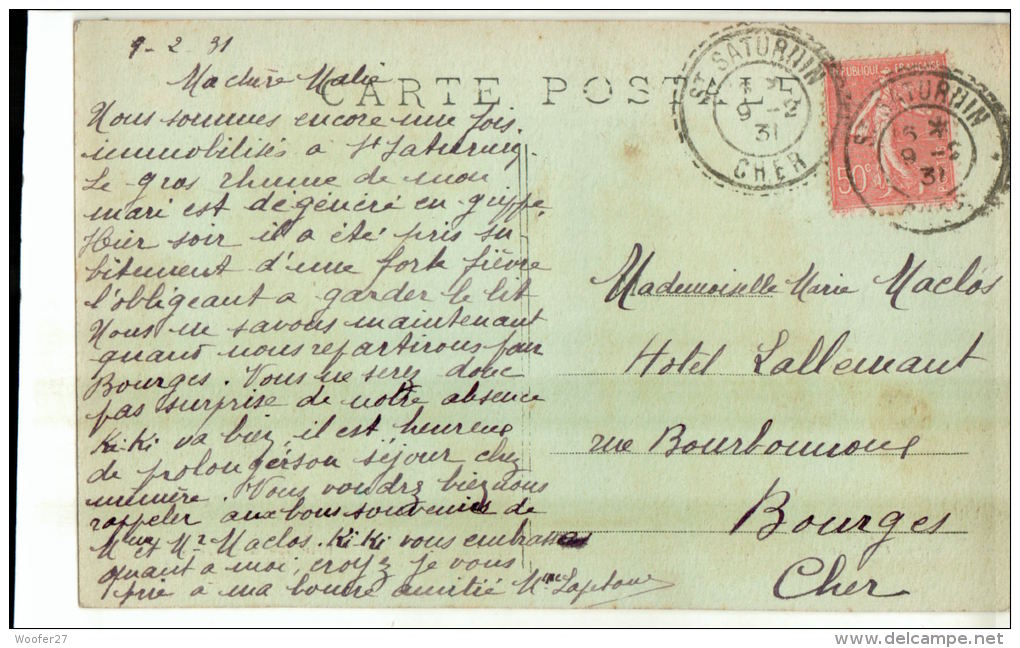 9-2-31
Ma chère Marie
CARTE POSTALE
Nous sommes encore une fois
immobilisés à St Saturnin,
Le gros rhume de mon
mari est dégénéré en grippe,
Hier soir il a été pris su-
bitement d'une forte fièvre
l'obligeant a garder le lit
Nous ne savons maintenant
quand nous repartirons pour
Bourges. Vous ne serez donc
pas surprise de notre absence
Ki-Ki va bien, il est heureux
de prolonger son séjour chez
mémère. Vous voudrez bien nous
rappeler aux bons souvenirs de
Mme et Mr Maclos. KiKi vous embrasse
quant à moi, croyez je vous
prie à ma bonne amitié Mme
ST SATURNIN
9 -2
31
CHER
RÉPUBLIQUE FRANÇAISE
50c
ST SATURNIN
9 -2
31
CHER
Mademoiselle Marie Maclos
Hotel Lallemant
rue Bourbonnoux
Bourges
Cher
Woofer27
www.delcampe.net